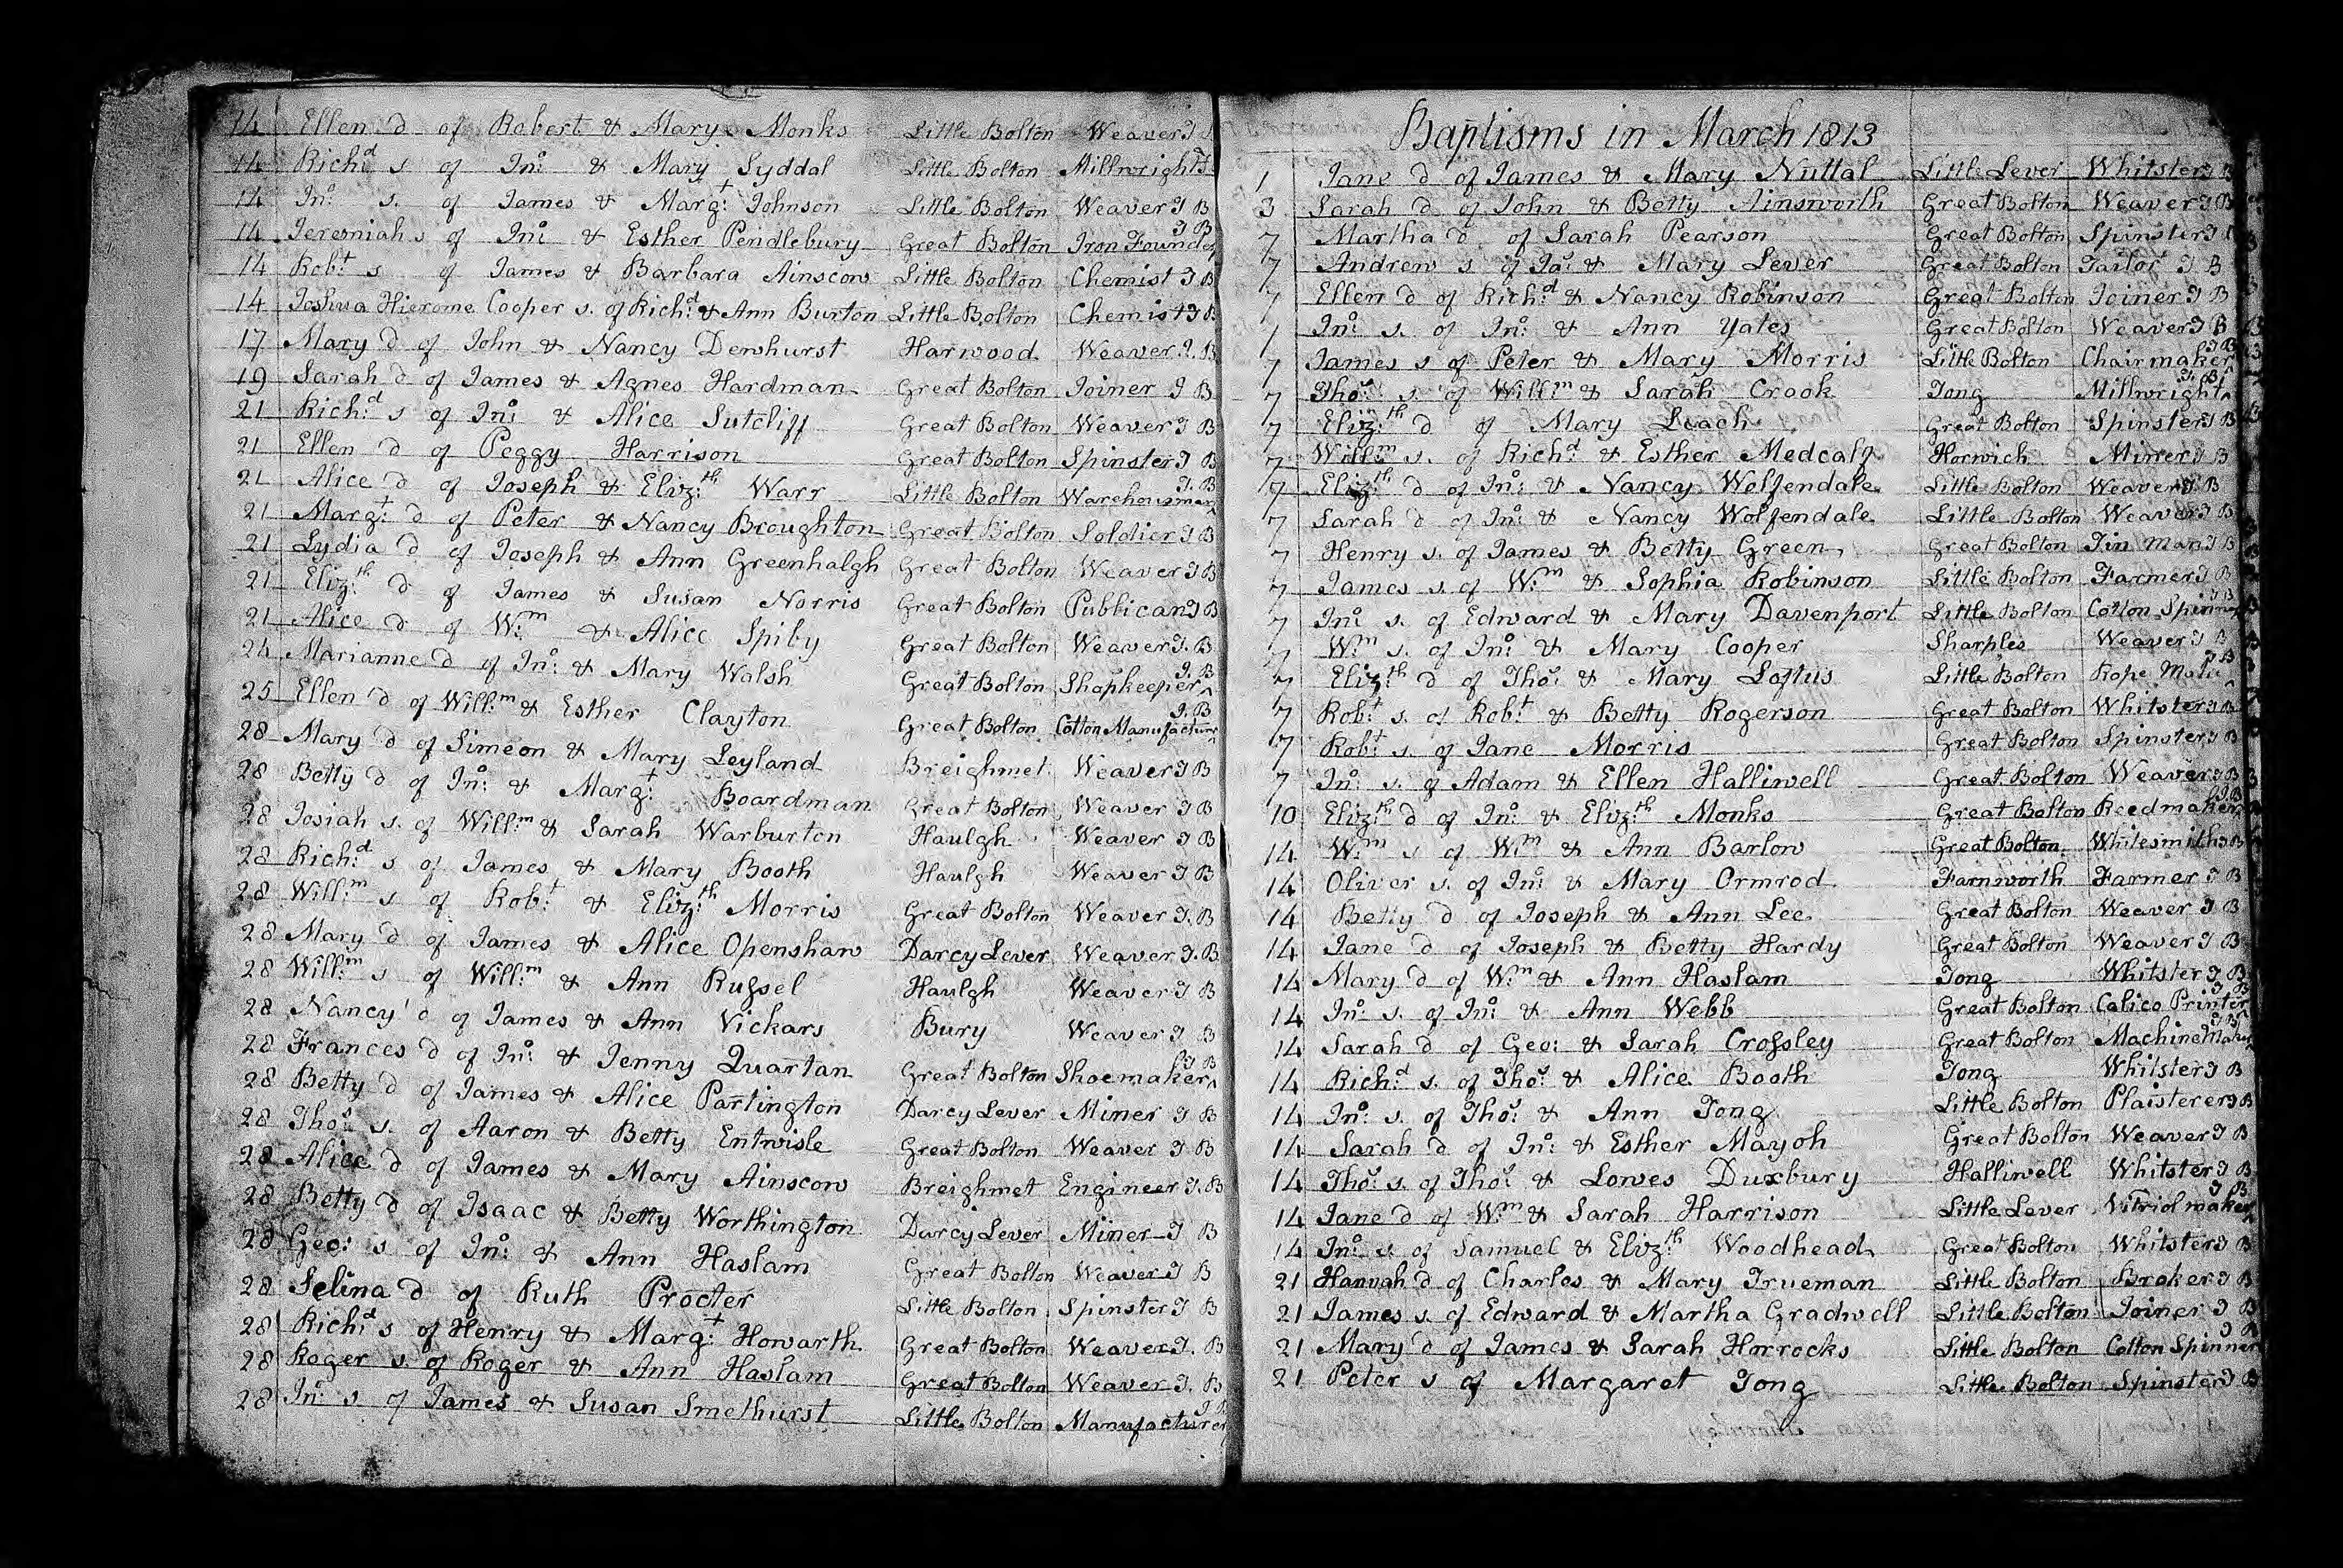 14 Ellen d of Robert & Mary Monks Little Bolton Weaver J
14 Richd s of Jno & Mary Syddal Little Bolton Millwright J
14 Jno s. of James & Margt Johnson Little Bolton Weaver J B
14 Jeremiah s of Jno & Esther Pendlebury Great Bolton Iron Founder J B
14 Robt s of James & Barbara Ainscow Little Bolton Chemist J B
14 Joshua Hierome Cooper s. of Richd & Ann Burton Little Bolton Chemist J B
17 Mary d of John & Nancy Dewhurst Harwood Weaver J. B
19 Sarah d of James & Agnes Hardman Great Bolton Joiner J B
21 Richd s of Jno & Alice Sutcliff Great Bolton Weaver J B
21 Ellen d of Peggy Harrison Great Bolton Spinster J B
21 Alice d of Joseph & Elizth Warr Little Bolton Warehousman J. B
21 Margt d of Peter & Nancy Broughton Great Bolton Soldier J B
21 Lydia d of Joseph & Ann Greenhalgh Great Bolton Weaver J B
21 Elizth d of James & Susan Norris Great Bolton Publican J B
21 Alice d of Wm & Alice Spiby Great Bolton Weaver J. B
24 Marianne d of Jno & Mary Walsh Great Bolton Shopkeeper J. B
25 Ellen d of Willm & Esther Clayton Great Bolton Cotton Manufacturer J. B
28 Mary d of Simeon & Mary Leyland Breighmet Weaver J B
28 Betty d of Jno & Margt Boardman Great Bolton Weaver J B
28 Josiah s. of Willm & Sarah Warburton Haulgh Weaver J B
28 Richd s of James & Mary Booth Haulgh Weaver J B
28 Willm s of Robt & Elizth Morris Great Bolton Weaver J. B
28 Mary d of James & Alice Openshaw Darcy Lever Weaver J. B
28 Willm s of Willm & Ann Rufsel Haulgh Weaver J B
28 Nancy d of James & Ann Vickars Bury Weaver J B
28 Frances d of Jno & Jenny Quartan Great Bolton Shoemaker J B
28 Betty d of James & Alice Partington Darcy Lever Miner J B
28 Thos s. of Aaron & Betty Entwisle Great Bolton Weaver J B
28 Alice d of James & Mary Ainscow Breighmet Engineer J. B
28 Betty d of Isaac & Betty Worthington Darcy Lever Miner J B
28 Geo: s of Jno & Ann Haslam Great Bolton Weaver J B
28 Selina d of Ruth Procter Little Bolton Spinster J B
28 Richd s of Henry & Margt Howarth Great Bolton Weaver J. B
28 Roger s. of Roger & Ann Haslam Great Bolton Weaver J. B
28 Jno s of James & Susan Smethurst Little Bolton Manufacturer J
Baptisms in March 1813
1 Jane d of James & Mary Nuttal Little Lever Whitster J B
3 Sarah d of John & Betty Ainsworth Great Bolton Weaver J B
7 Martha d of Sarah Pearson Great Bolton Spinster J
7 Andrew s of Jas & Mary Lever Great Bolton Tailor J B
7 Ellen d of Richd & Nancy Robinson Great Bolton Joiner J B
7 Jno s. of Jno & Ann Yates Great Bolton Weaver J B
7 James s of Peter & Mary Morris Little Bolton Chairmaker J B
7 Thos s. of Willm & Sarah Crook Tong Millwright J. B
7 Elizth d of Mary Leach Great Bolton Spinster J B
7 Willm s. of Richd & Esther Medcalf Horwich Miner J B
7 Elizth d of Jno & Nancy Wolfendale Little Bolton Weaver J B
7 Sarah d of Jno & Nancy Wolfendale Little Bolton Weaver J B
7 Henry s. of James & Betty Green Great Bolton Tin Man J B
7 James s. of Wm & Sophia Robinson Little Bolton Farmer J B
7 Jno s. of Edward & Mary Davenport Little Bolton Cotton Spinner J B
7 Wm s. of Jno & Mary Cooper Sharples Weaver J B
7 Elizth d of Thos & Mary Loftus Little Bolton Rope Maker J B
7 Robt s. of Robt & Betty Rogerson Great Bolton Whitster J B
7 Robt s. of Jane Morris Great Bolton Spinster J B
7 Jno s. of Adam & Ellen Halliwell Great Bolton Weaver J B
10 Elizth d of Jno & Elizth Monks Great Bolton Reedmaker J B
14 Wm s of Wm & Ann Barlow Great Bolton Whitesmith J B
14 Oliver s. of Jno & Mary Ormrod Farnworth Farmer J B
14 Betty d of Joseph & Ann Lee Great Bolton Weaver J B
14 Jane d of Joseph & Betty Hardy Great Bolton Weaver J B
14 Mary d of Wm & Ann Haslam Tong Whitster J B
14 Jno s. of Jno & Ann Webb Great Bolton Calico Printer J B
14 Sarah d of Geo: & Sarah Crofsley Great Bolton Machine Maker J B
14 Richd s. of Thos & Alice Booth Tong Whitster J B
14 Jno s. of Thos & Ann Tong Little Bolton Plaisterer J B
14 Sarah d of Jno & Esther Mayoh Great Bolton Weaver J B
14 Thos s. of Thos & Lowes Duxbury Halliwell Whitster J B
14 Jane d of Wm & Sarah Harrison Little Lever Vitriol maker J B
14 Jno s of Samuel & Elizth Woodhead Great Bolton Whitster J B
21 Hannah d of Charles & Mary Trueman Little Bolton Broker J B
21 James s. of Edward & Martha Gradwell Little Bolton Joiner J B
21 Mary d of James & Sarah Horrocks Little Bolton Cotton Spinner J B
21 Peter s of Margaret Tong Little Bolton Spinster J B